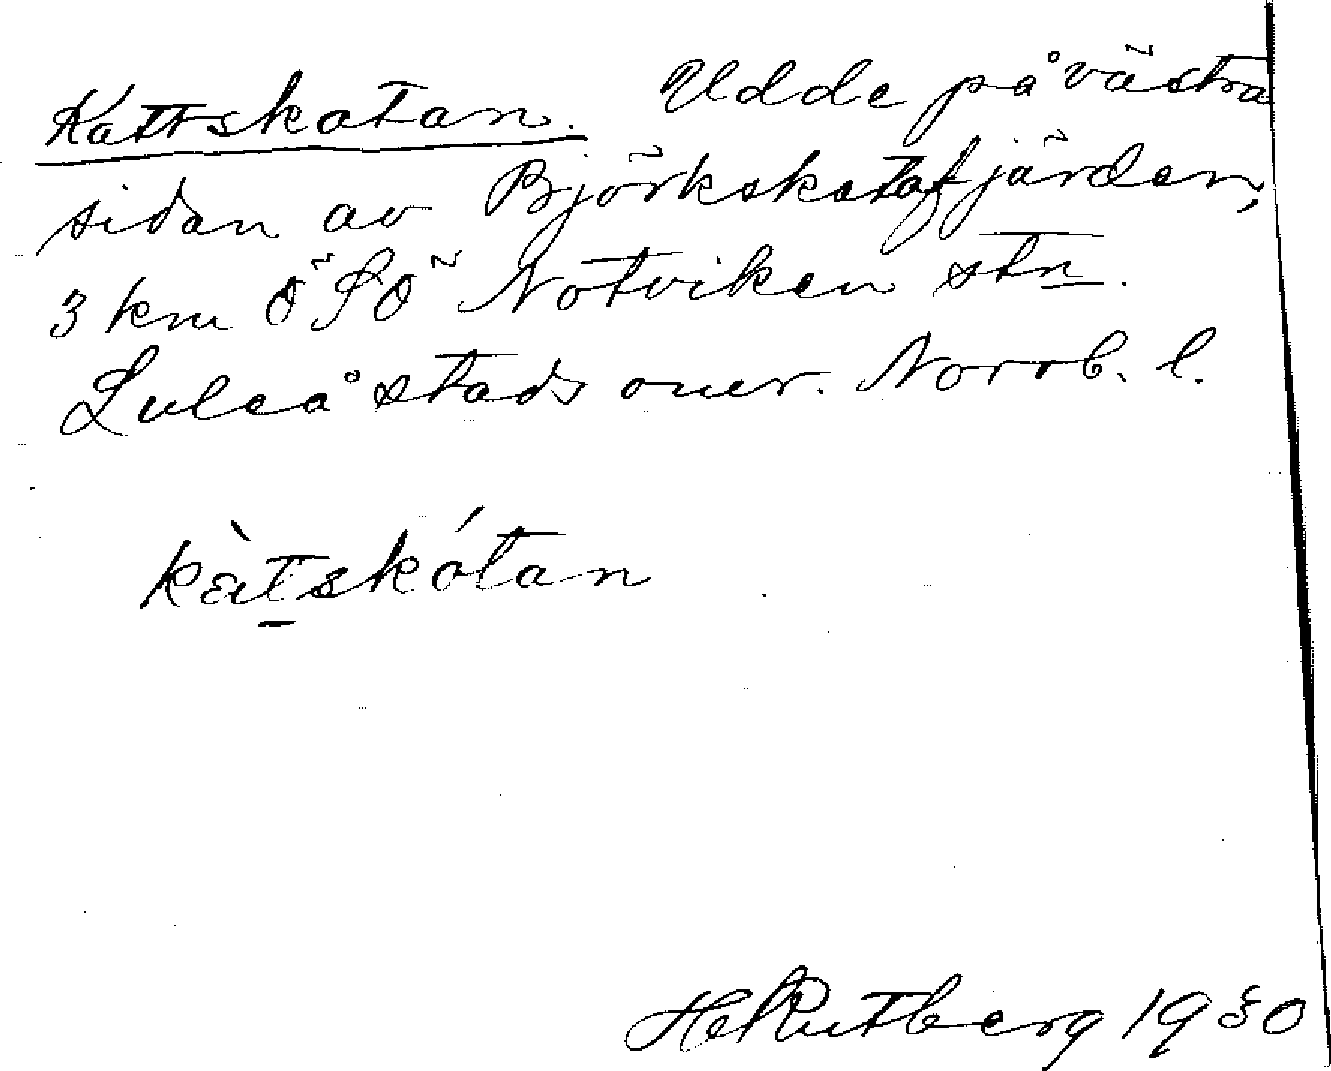 Kattskatan. Udde på västra
sidan av Björkskatafjärden,
3 km ÖSÖ Notviken stn.
Luleå stads omr. Norrb. l.
kàtskótan
HRutberg 1930